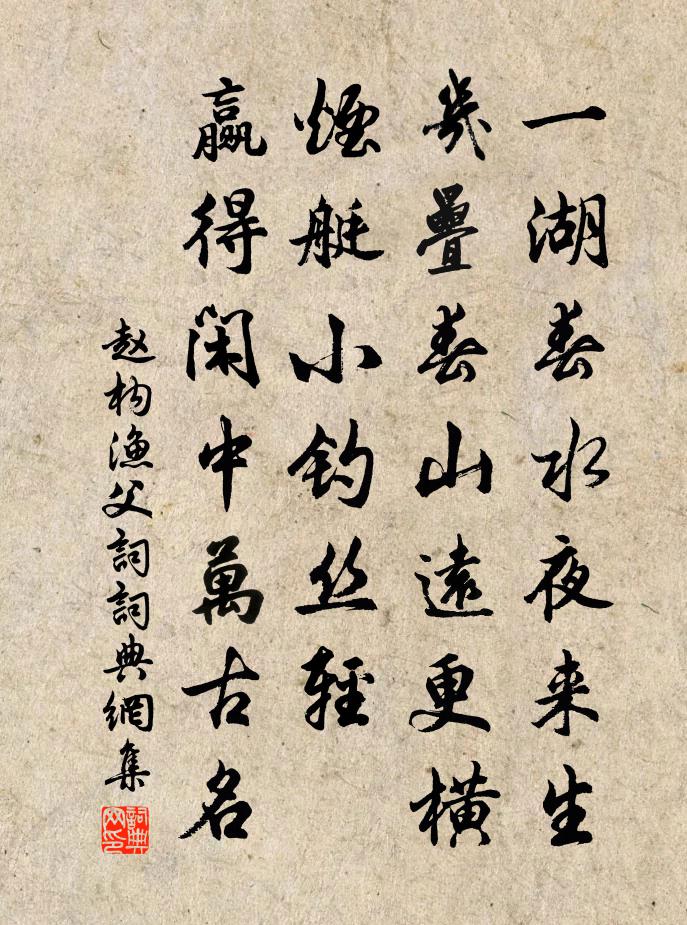 一湖春水夜来生
幾疊春山遠更橫
煙艇小釣丝輕
贏得闲中萬古名
赵构漁父詞詞典網集
詞典网印